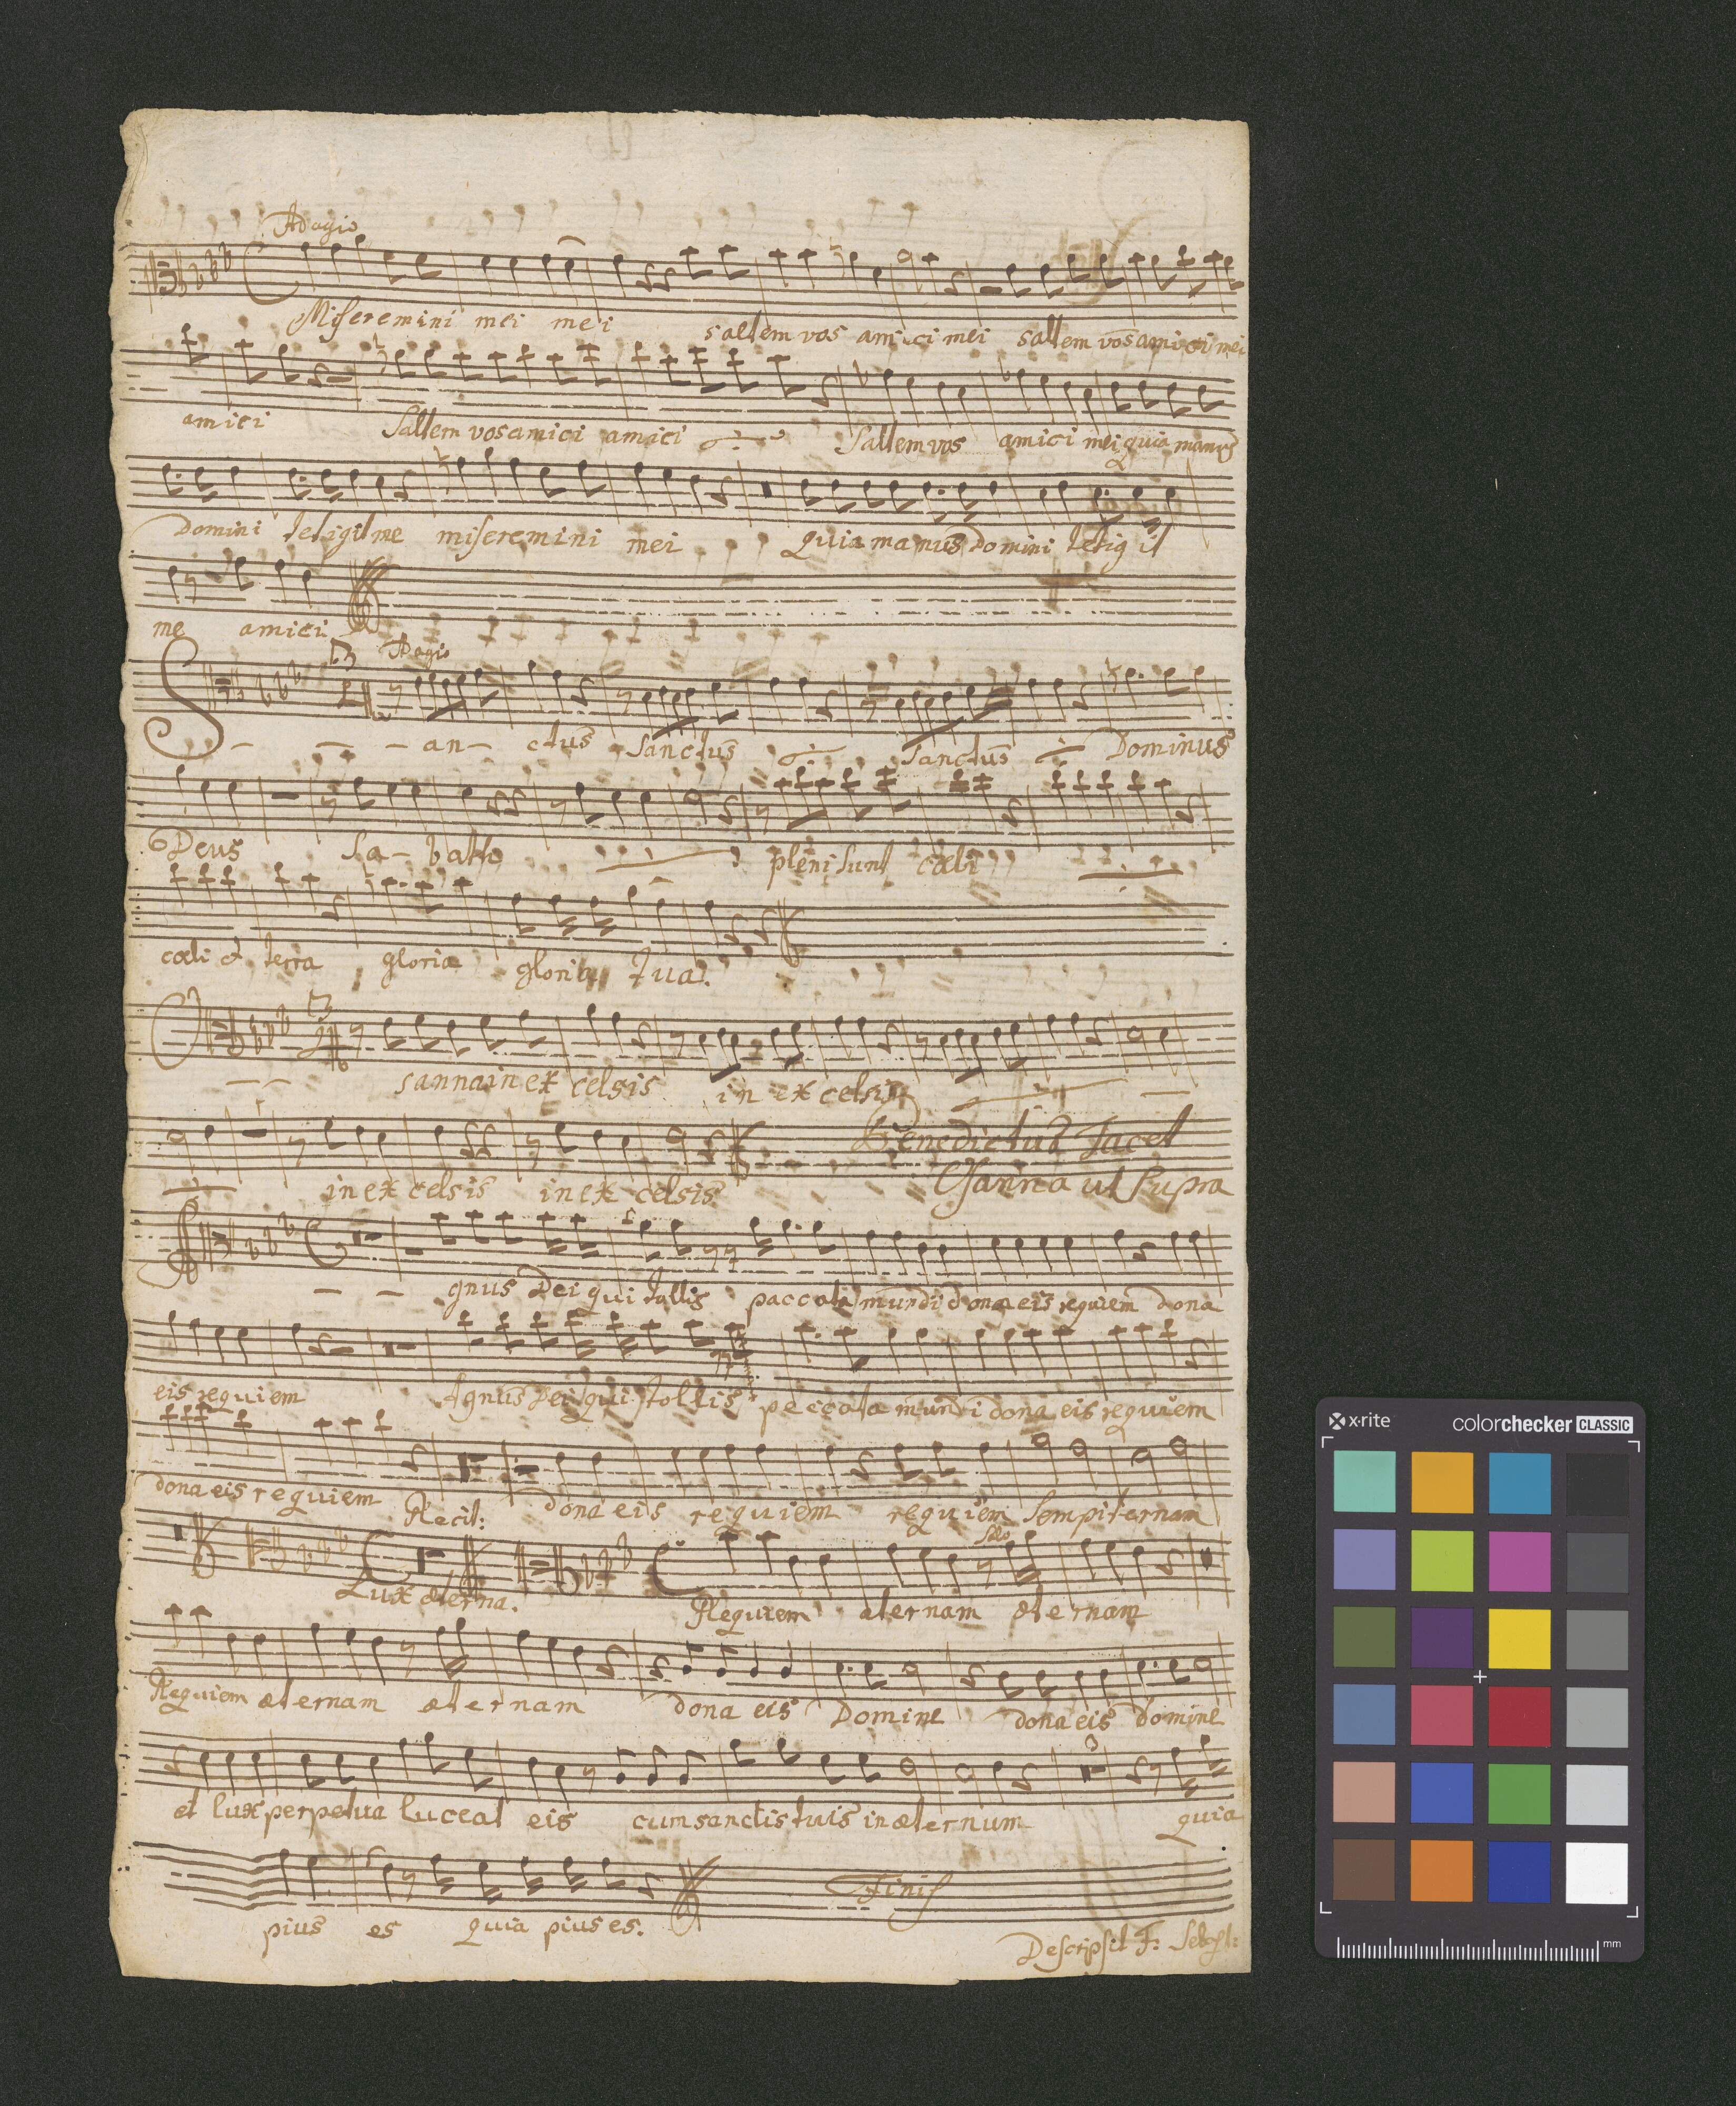 Adagio
Miseremini mei mei saltem vos amici mei saltem vos amici mei
amici Saltem vos amici amici Saltem vos amici mei quia manus
Domini tetigit me miseremini mei quia manus Domini tetigit
me amici
Adagio
S - - - an - ctus Sanctus Sanctus Dominus
Deus Sa - bath pleni sunt cœli
cœli et terra gloria gloria tua.
O - - sanna in ex celsis in ex celsis
Benedictus Tacet
in ex celsis in ex celsis Osanna ut Supra
A - - gnus Dei qui tollis paccata mundi dona eis requiem dona
eis requiem Agnus Dei qui tollis peccata mundi dona eis requiem
dona eis requiem dona eis requiem requiem sempiternam
Recit:
Solo
Lux æterna. Requiem æternam æternam
Requiem æternam æternam dona eis Domine dona eis domine
et lux perpetua luceat eis cum sanctis tuis in æternum quia
Finis
pius es quia pius es.
Descripsit F:
x·rite colorchecker CLASSIC
mm